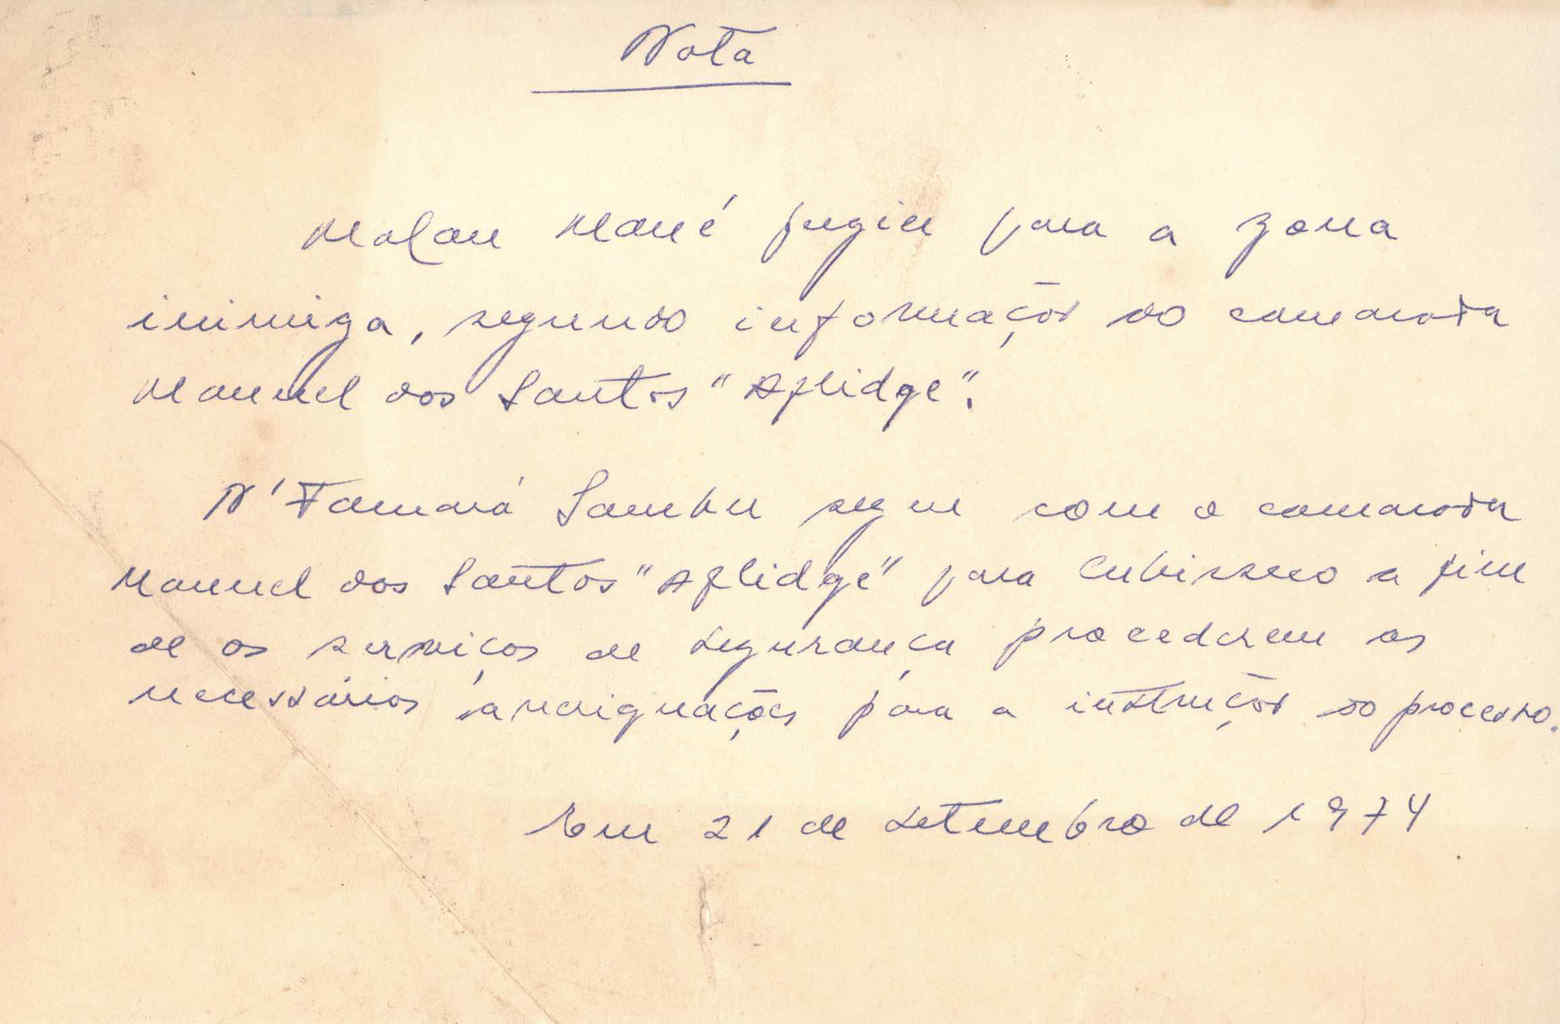 Nota
Malan Mané fugiu para a zona
inimiga, segundo informações do camarada
Manuel dos Santos "Aflidge".
N'Famará Sambu segue com o camarada
Manuel dos Santos "Aflidge" para Cubisseco a fim
de os serviços de segurança procederem as
necessários averiguações para a instrução do processo.
Em 21 de Setembro de 1974